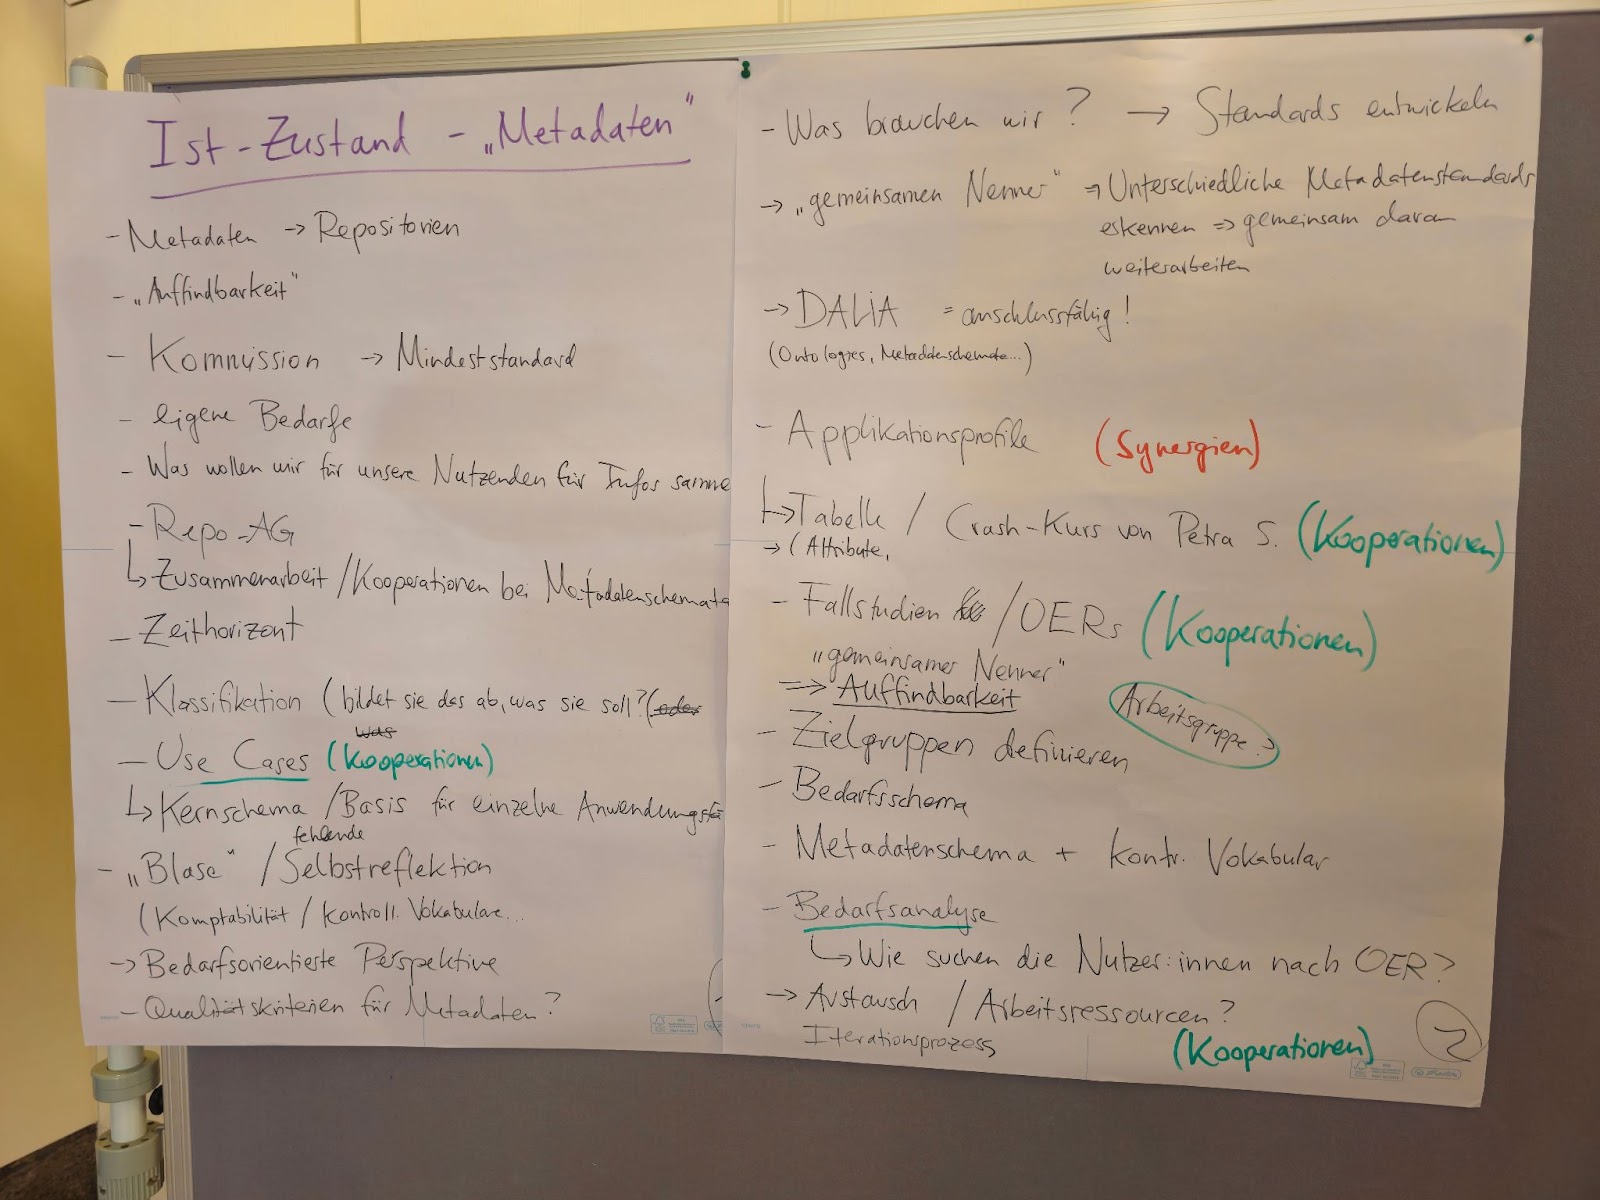 Ist-Zustand - „Metadaten"
- Metadaten → Repositorien
- „Auffindbarkeit"
- Kommission → Mindeststandard
- eigene Bedarfe
- Was wollen wir für unsere Nutzenden für Infos samme
- Repo-AG
↳ Zusammenarbeit / Kooperationen bei Metadatenschemata
- Zeithorizont
- Klassifikation (bildet sie das ab, was sie soll? (oder
was
- Use Cases (Kooperationen)
↳ Kernschema / Basis für einzelne Anwendungsfä
fehlende
- „Blase" / Selbstreflektion
(Komptabilität / Kontroll. Vokabulare...
→ Bedarfsorientierte Perspektive
- Qualitätskriterien für Metadaten?
- Was brauchen wir? → Standards entwickeln
→ „gemeinsamen Nenner" ⇒ Unterschiedliche Metadatenstandards
erkennen ⇒ gemeinsam daran
weiterarbeiten
→ DALIA = anschlussfähig!
(Ontologies, Metadatenschemata...)
- Applikationsprofile (Synergien)
↳ Tabelle / Crash-Kurs von Petra S. (Kooperationen)
→ (Attribute,
- Fallstudien / OERs (Kooperationen)
„gemeinsamer Nenner"
⇒ Auffindbarkeit
Arbeitsgruppe?
- Zielgruppen definieren
- Bedarfsschema
- Metadatenschema + kontr. Vokabular
- Bedarfsanalyse
↳ Wie suchen die Nutzer:innen nach OER?
→ Austausch / Arbeitsressourcen?
Iterationsprozess (Kooperationen)
2